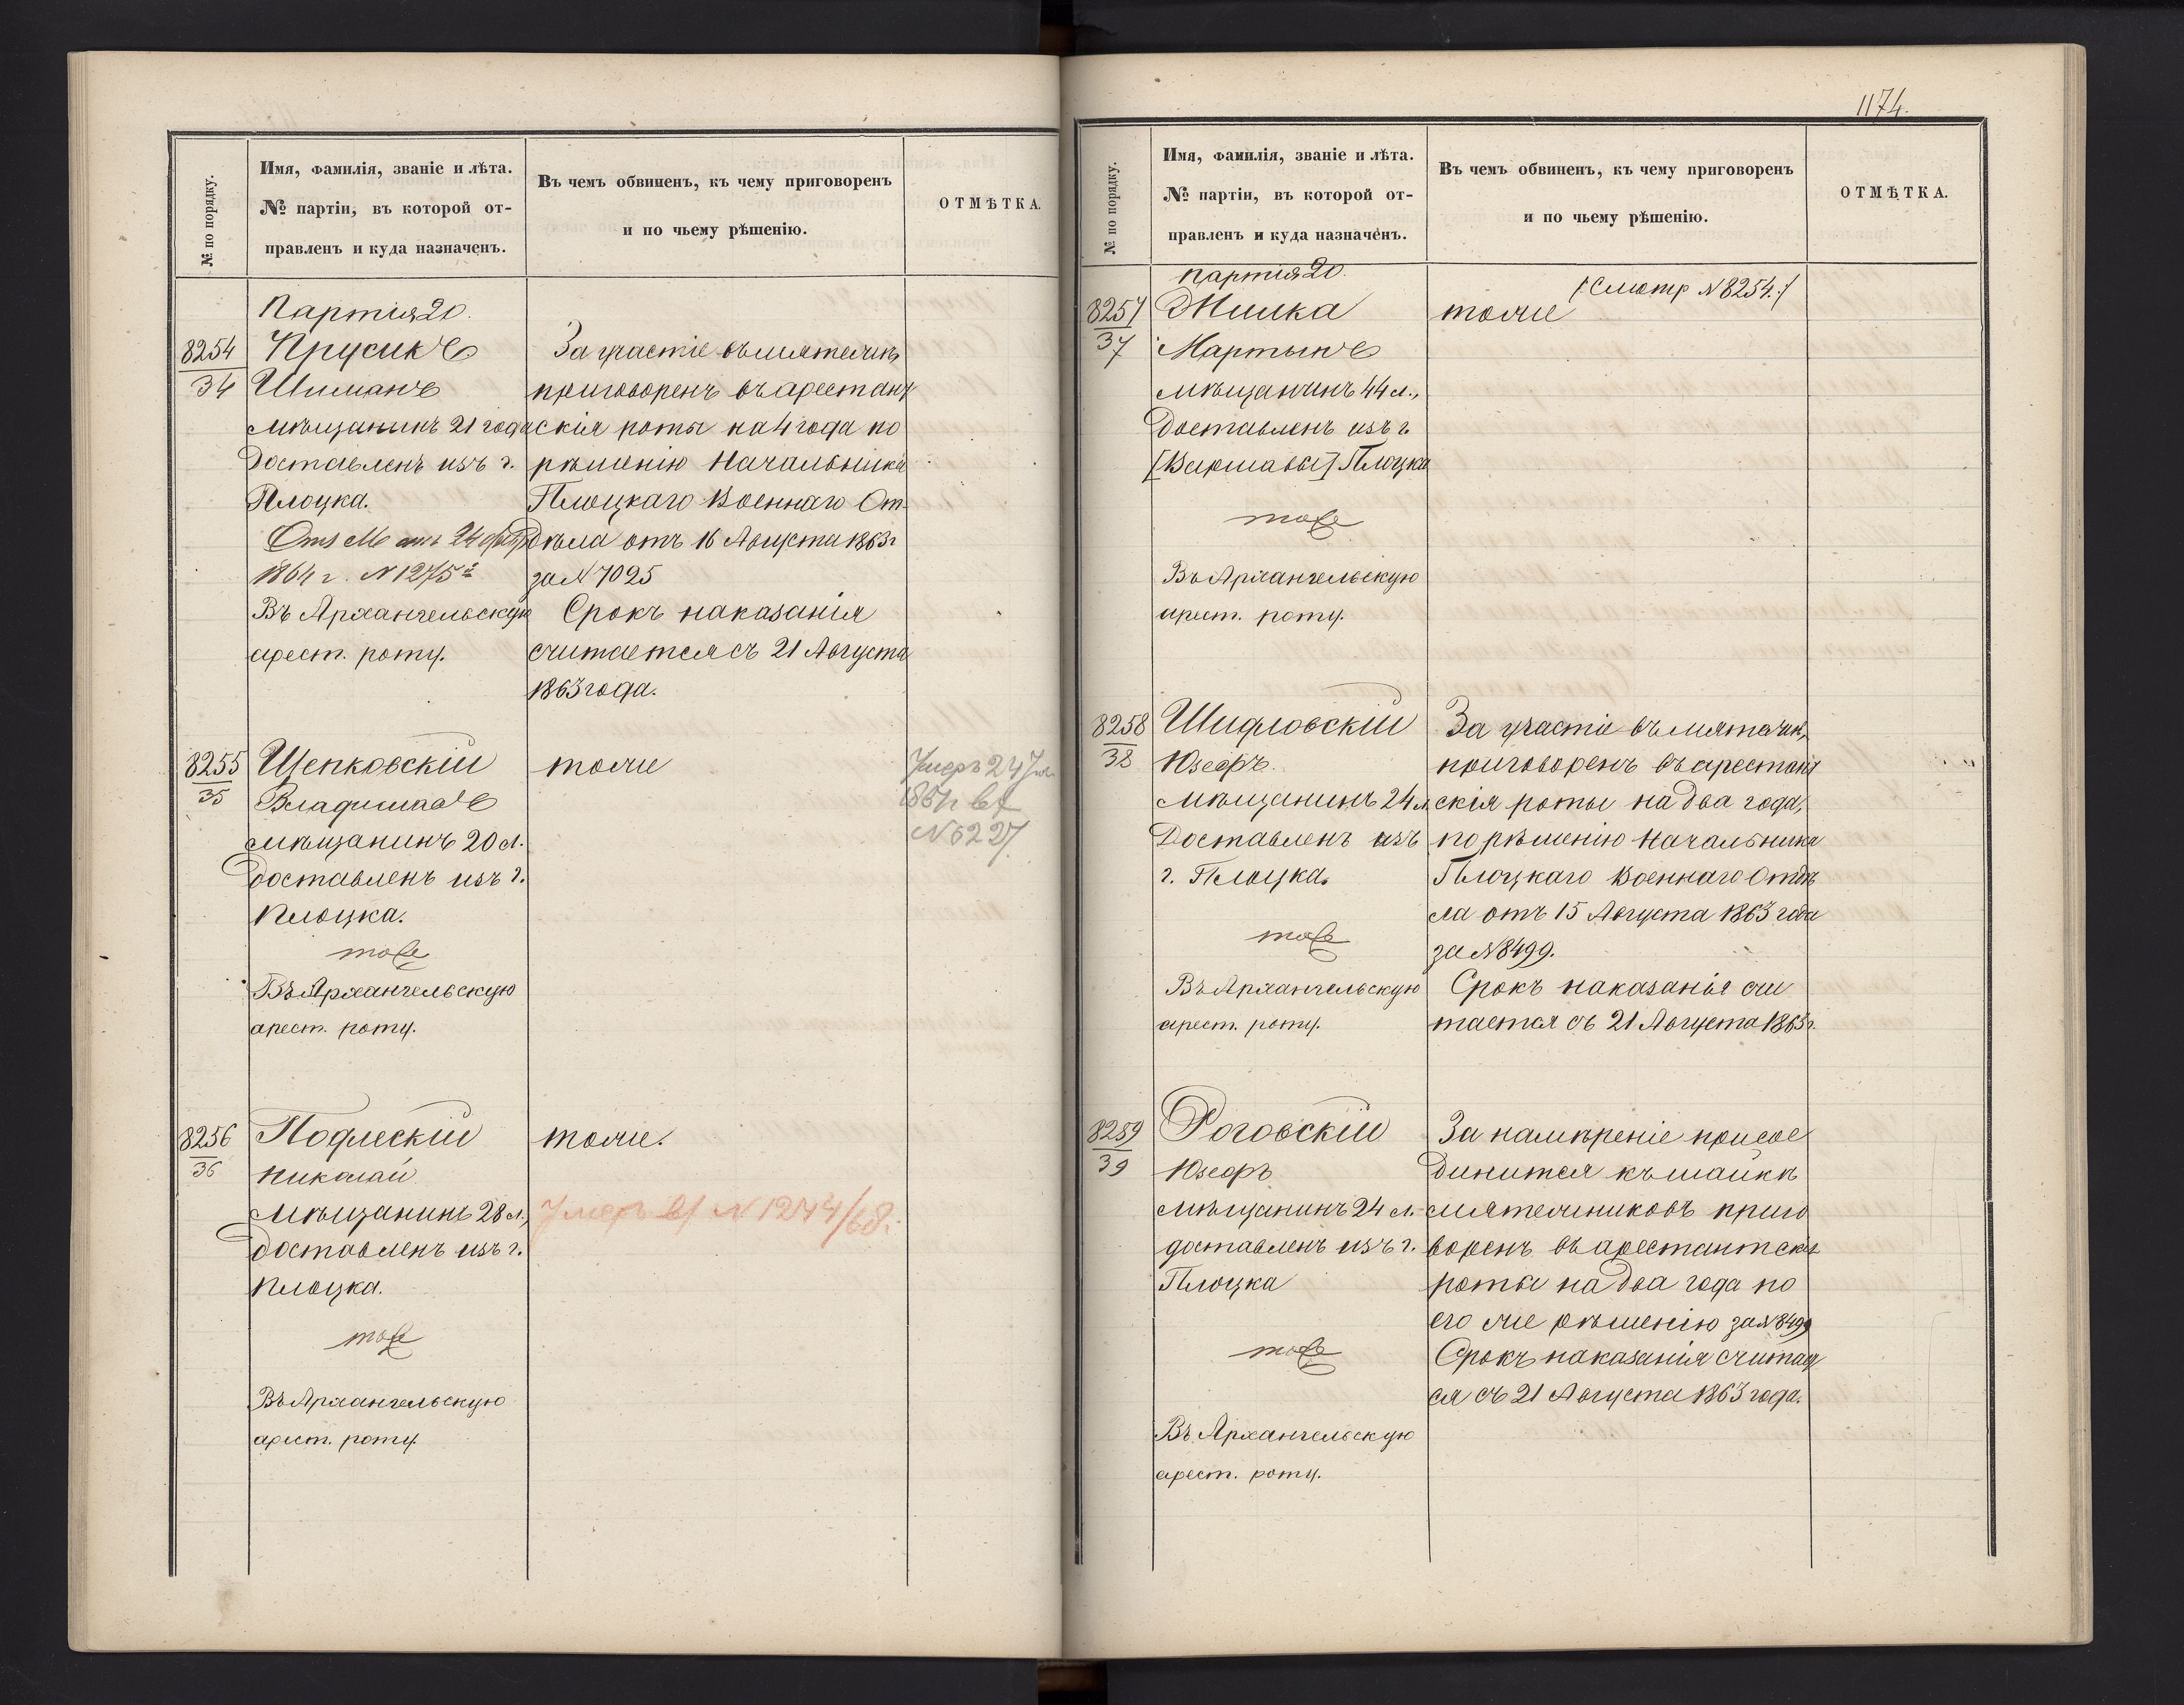 № по порядку.
Имя, фамилія, званіе и лѣта.
№ партіи, въ которой от-
правленъ и куда назначенъ.
Въ чемъ обвиненъ, къ чему приговоренъ
и по чьему рѣшенію.
ОТМѢТКА.
Партія 20.
8254
34
Прусикъ
Шиманъ
мѣщанинъ 21 года
Доставленъ изъ г.
Плоцка.
1864 г. N 1275
Въ Архангельскую
арест. роту.
За участіе въ мятежѣ,
приговоренъ въ арестант
скія роты на 4 года по
рѣшенію Начальника
Плоцкаго Военнаго От-
дѣла отъ 16 Августа 1863 г
за N 7025
Срокъ наказанія
считается съ 21 Августа
1863 года.
8255
35
Щепковскій
Владиславъ
мѣщанинъ 20 л.
доставленъ изъ г.
Плоцка.
тоже
Въ Архангельскую
арест. роту.
тоже
Умеръ 24
N 6227
8256
36
Подлескій
Николай
мѣщанинъ 28 л.,
доставленъ изъ г.
Плоцка.
тоже
Въ Архангельскую
арест. роту.
тоже.
Умеръ N 1244/68.
1174.
№ по порядку.
Имя, фамилія, званіе и лѣта.
№ партіи, въ которой от-
правленъ и куда назначенъ.
Въ чемъ обвиненъ, къ чему приговоренъ
и по чьему рѣшенію.
ОТМѢТКА.
партія 20.
8257
37
Жилка
Мартынъ
мѣщанинъ 44 л.,
Доставленъ изъ г.
[Варшавы] Плоцка
тоже
Въ Архангельскую
арест. роту.
/:Смотр N 8254.:/
тоже
8258
38
Шидловскій
Юзефъ.
мѣщанинъ 24 л.
Доставленъ изъ
г. Плоцка.
тоже
Въ Архангельскую
арест. роту.
За участіе въ мятежѣ,
приговоренъ въ арестант
скія роты на два года,
по рѣшенію Начальника
Плоцкаго Военнаго Отдѣ
ла отъ 15 Августа 1863 года
за N 8499.
Срокъ наказанія счи
тается съ 21 Августа 1863 г.
8259
39
Роговскій
Юзефъ
мѣщанинъ 24 л.
доставленъ изъ г.
Плоцка
тоже
Въ Архангельскую
арест. роту.
За намѣреніе присое
динится къ шайкѣ
мятежниковъ приго
воренъ въ арестантскія
роты на два года по
его же рѣшенію за N 8499
Срокъ наказанія считает
ся съ 21 Августа 1863 года.